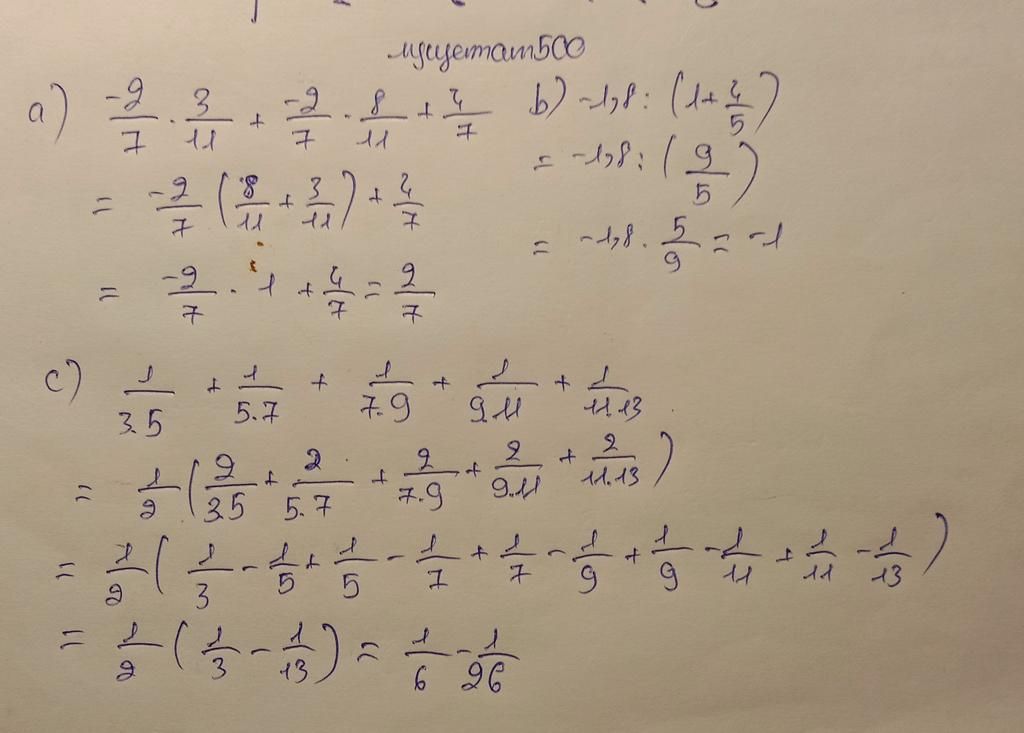 цуцетат500
a) -2/7 . 3/11 + -2/7 . 8/11 + 4/7
= -2/7 (8/11 + 3/11) + 4/7
= -2/7 . 1 + 4/7 = 2/7
b) -1,8 : (1 + 4/5)
= -1,8 : (9/5)
= -1,8 . 5/9 = -1
c) 1/3.5 + 1/5.7 + 1/7.9 + 1/9.11 + 1/11.13
= 1/2 (2/3.5 + 2/5.7 + 2/7.9 + 2/9.11 + 2/11.13)
= 1/2 (1/3 - 1/5 + 1/5 - 1/7 + 1/7 - 1/9 + 1/9 - 1/11 + 1/11 - 1/13)
= 1/2 (1/3 - 1/13) = 1/6 - 1/26